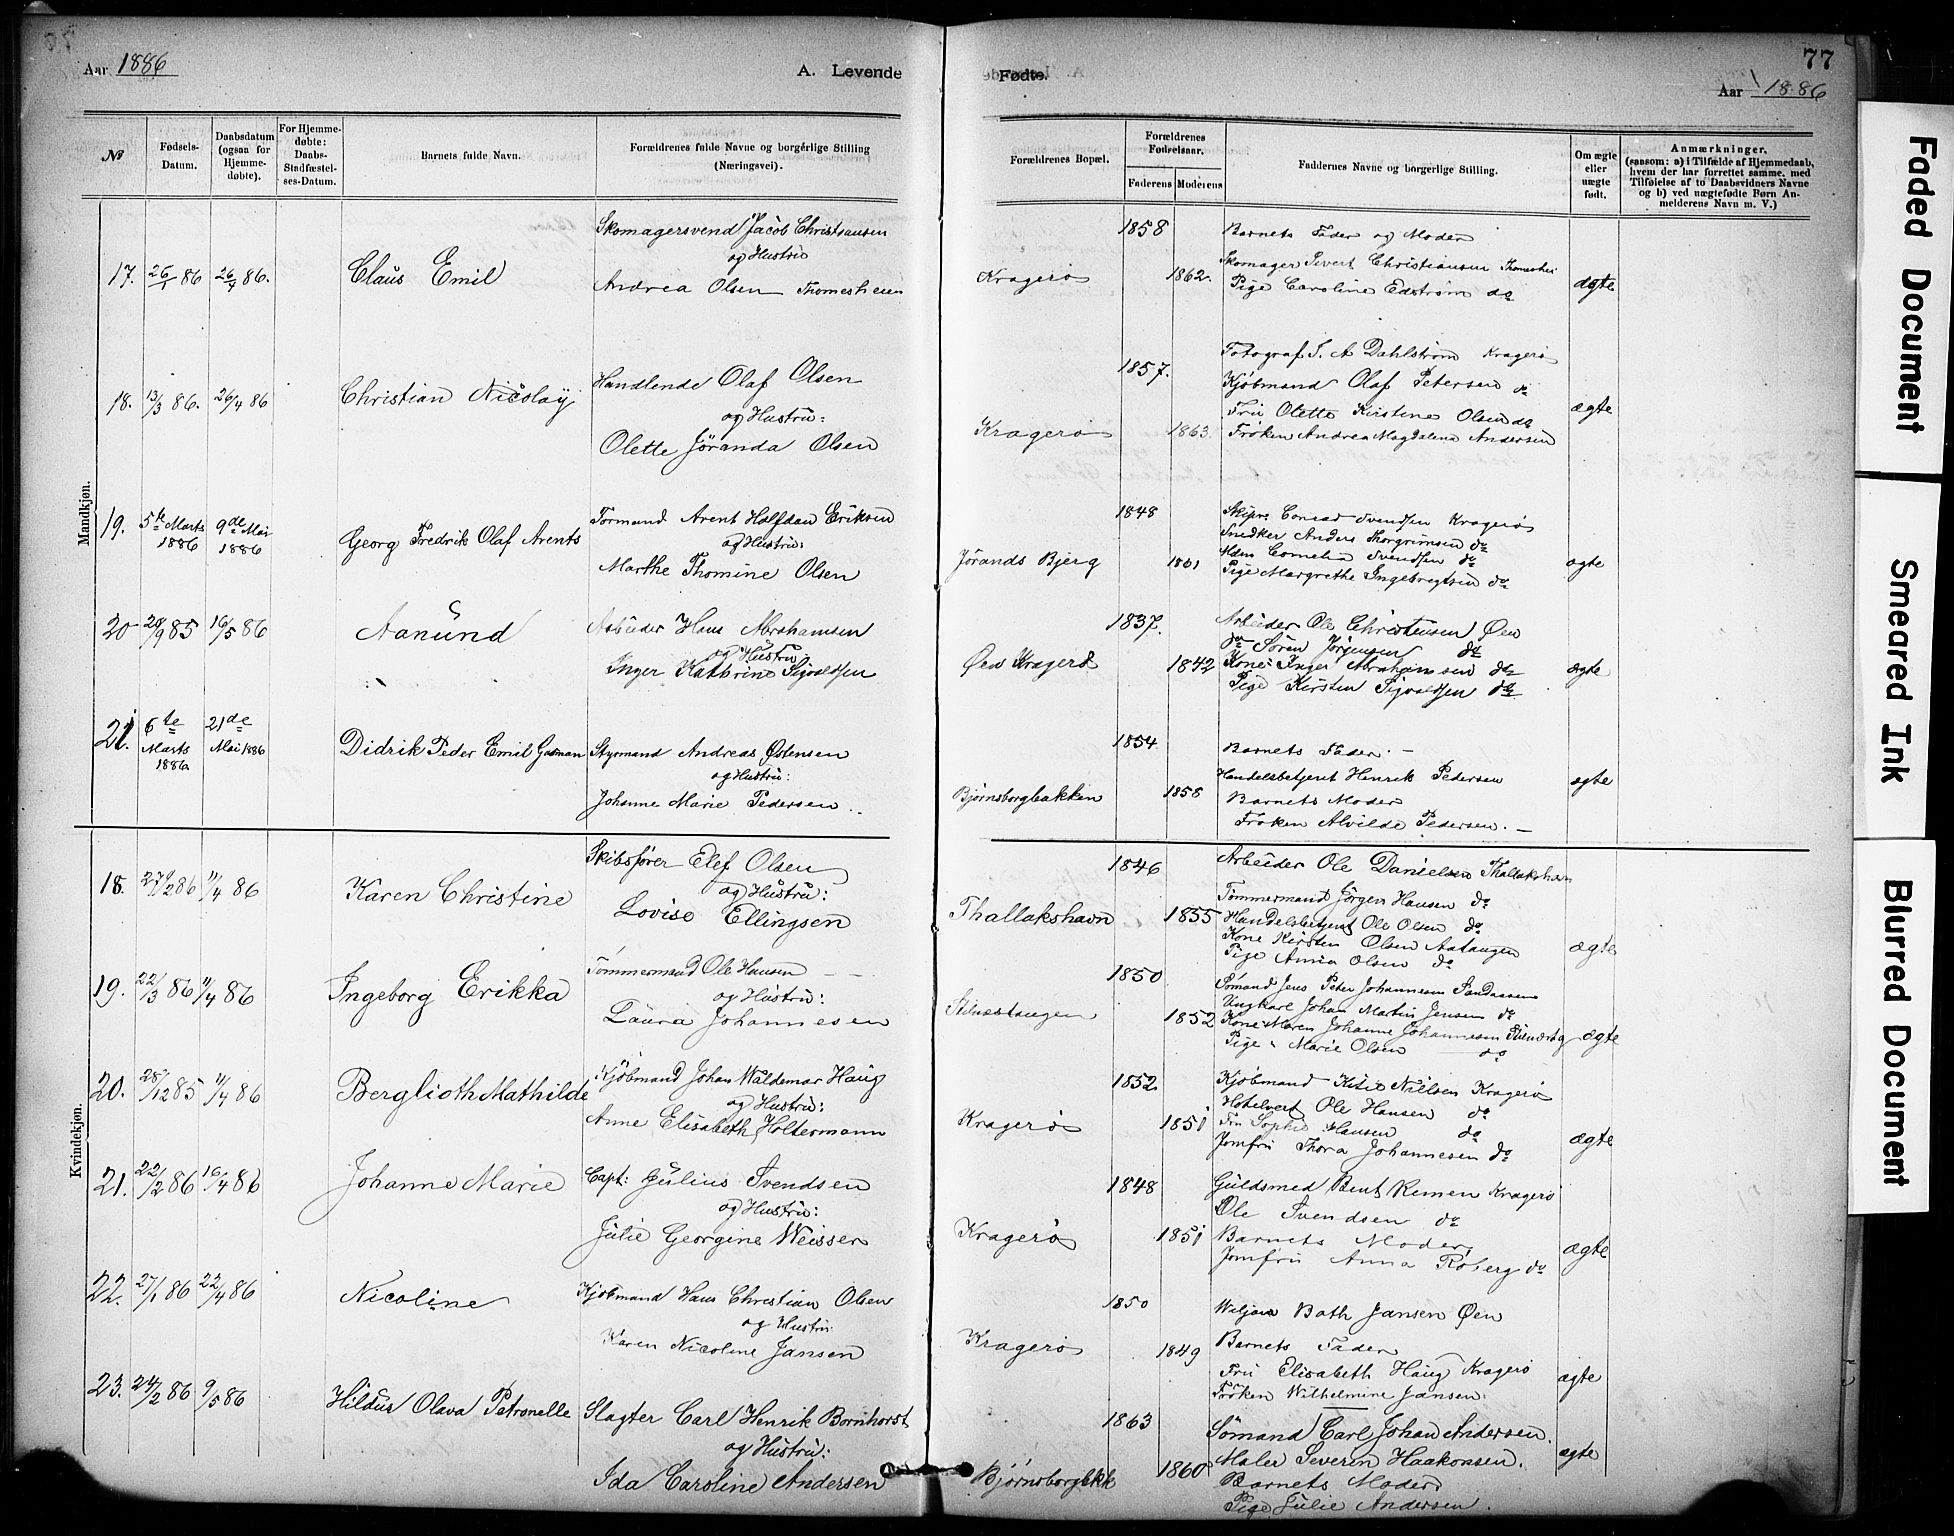 Aar 1886
A. Levende
Fødte.
77
Aar 1886
№
Fødsels-
Datum.
Daabsdatum
(ogsaa for
Hjemme-
døbte).
For Hjemme-
døbte:
Daabs-
Stadfæstel-
ses-Datum.
Barnets fulde Navn.
Forældrenes fulde Navne og borgerlige Stilling
(Næringsvei).
Forældrenes Bopæl.
Forældrenes
Fødselsaar.
Faderens
Moderens
Faddernes Navne og borgerlige Stilling.
Om ægte
eller
uægte
født.
Anmærkninger.
(saasom: a) i Tilfælde af Hjemmedaab,
hvem der har forrettet samme, med
Tilføielse af to Daabsvidners Navne
og b) ved uægtefødte Børn An-
melderens Navn m. V.)
Mandkjøn.
17. 25/1 86 26/4 86.
Claus Emil
Skomagersvend Jacob Christiansen
og Hustru
Andrea Olsen Thomesheien
Kragerø
1858
1862.
Barnets Fader og Moder
Skomager Sivert Christiansen Thomeshei
Pige Caroline Edstrøm do
ægte
18. 13/3 86. 26/4 86
Christian Nicolay
Handlende Olaf Olsen
og Hustru:
Olette Jöranda Olsen
Kragerö
1857.
1863
Fotograf S. A Dahlström Kragerø
Kjöbmand Olaf Petersen do
Fru Olette Kirstine Olsen do
Frøken Andrea Magdalena Andersen
ægte
19. 5te Marts 1886 9de Mai 1886
Georg Fredrik Olaf Arents
Tormand Arent Halfdan Eriksen
og Hustru:
Marthe Thomine Olsen
Jörands Bjerg
1848
1861
Skipr. Conrad Svendsen Kragerø
Snedker Anders Thorgrimsen do
Mdm Cornelia Svendsen do
Pige Margrethe Ingebregtsen do
ægte
20 28/9 85 16/5 86
Aanund
Arbeider Hans Abrahamsen
og Hustru
Inger Kathrine Sigvaldsen
Øen Kragerö
1837.
1842
Arbeider Ole Christensen Øen
do Sören Jörgensen do
Kone Inger Abrahamsen do
Pige Kirsten Sigvaldsen do
ægte
21. 6te Marts 1886 21de Mai 1886
Didrik Peder Emil Gasman
Styrmand Andreas Østensen
og Hustru:
Johanne Marie Pedersen.
Bjørnsborgbakken
1854
1858
Barnets Fader. –
Handelsbetjent Henrik Pedersen
Barnets Moder
Frøken Alvilde Pedersen. –
ægte
Kvindekjøn.
18. 27/12 86 11/4 86
Karen Christine
Skibsfører Elef Olsen
og Hustru:
Lovise Ellingsen
Thallakshavn
1846
1855
Arbeider Ole Danielsen Thallakshavn
Tömmermand Jörgen Hansen do
Handelsbetjent Ole Olsen do
Kone Kirsten Olsen Aatangen
Pige Anna Olsen do
ægte
19. 22/3 86 11/4 86
Ingeborg Erikka
Tömmermand Ole Hansen
og Hustru:
Laura Johannesen
Stilnæstangen
1850
1852
Sømand Jens Peter Johannesen
Ungkarl Johan Martin Jensen do
Kone Maren Johanne Johannesen
Pige Marie Olsen do
ægte
20. 28/12 85 11/4 86
Berglioth Mathilde
Kjöbmand Johan Waldemar Haug
og Hustru:
Anne Elisabeth Holtermann
Kragerø
1852
1851
Kjöbmand Nielsen Kragerø
Hotelvert Ole Hansen do
Fru Sophie Hansen do
Jomfru Thora Johannesen do
ægte
21. 22/2 86 16/4 86
Johanne Marie
Capt: Julius Svendsen
og Hustru:
Julie Georgine Weisser
Kragerø
1848
1851
Guldsmed Bent Remen Kragerø
Ole Svendsen do
Barnets Moder,
Jomfru Anna Roberg do
ægte
22. 27/1 86 22/4 86
Nicoline
Kjöbmand Hans Christian Olsen
og Hustru:
Karen Nicoline Jansen
Kragerø
1850
1849
Both Jansen Øen
Barnets Fader
Fru Elisabeth Haug Kragerø
Frøken Wilhelmine Jansen.
ægte
23. 24/2 86 9/5 86
Hildur Olava Petronelle
Slagter Carl Henrik Bornhorst
og Hustru:
Ida Caroline Andersen
Bjørnsborgbkk
1863
1860
Sömand Carl Johan Andersen.
Maler Severin Haakonsen.
Barnets Moder
Pige Julie Andersen.
ægte
Faded Document
Smeared Ink
Blurred Document